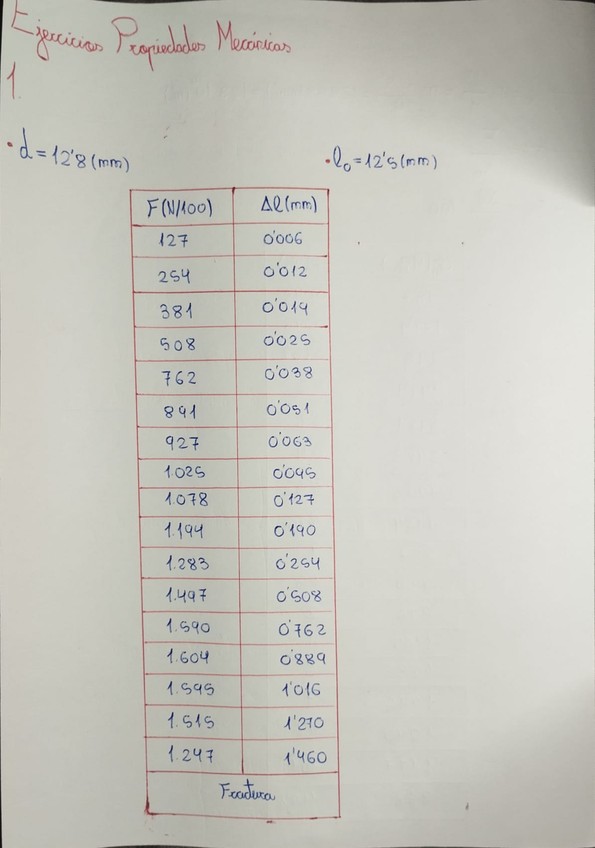 Ejercicios Propiedades Mecánicas
1.
• d = 12'8 (mm) • l₀ = 12'5 (mm)
F (N/100) Δl (mm)
127 0'006
254 0'012
381 0'014
508 0'025
762 0'038
891 0'051
927 0'063
1.025 0'095
1.078 0'127
1.194 0'190
1.283 0'254
1.497 0'508
1.590 0'762
1.604 0'889
1.595 1'016
1.515 1'270
1.247 1'460
Fractura